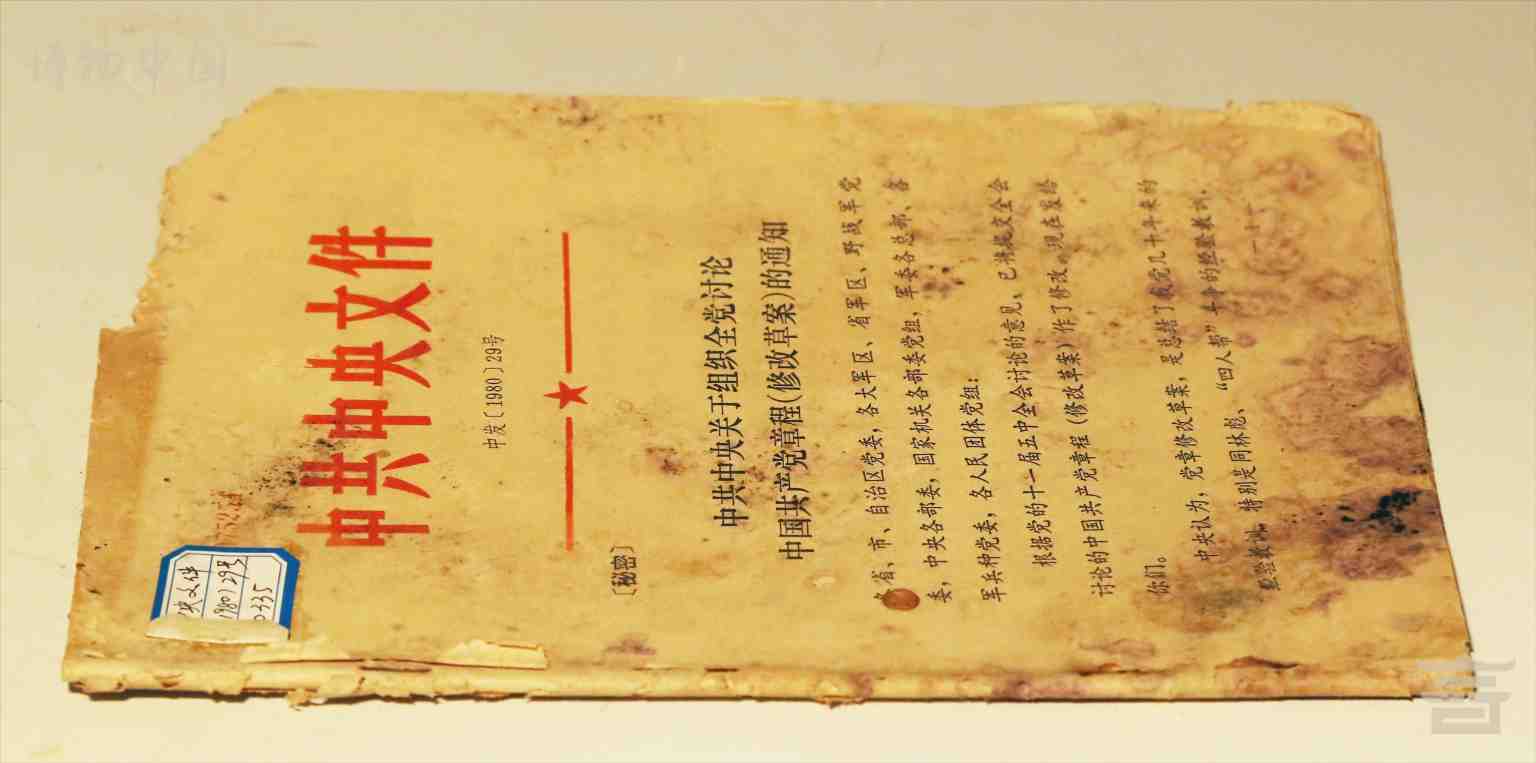 博物中国
央文件
1980）29号
0335
中共中央文件
中发〔1980〕29号
〔秘密〕
中共中央关于组织全党讨论
中国共产党章程(修改草案)的通知
各省、市、自治区党委，各大军区、省军区、野战军党
委，中央各部委，国家机关各部委党组，军委各总部、各
军兵种党委，各人民团体党组：
根据党的十一届五中全会讨论的意见，已将提交全会
讨论的中国共产党章程（修改草案）作了修改。现在发给
你们。
中央认为，党章修改草案，是总结了我党几十年来的
经验教训，特别是同林彪、“四人帮”斗争的经验教训，